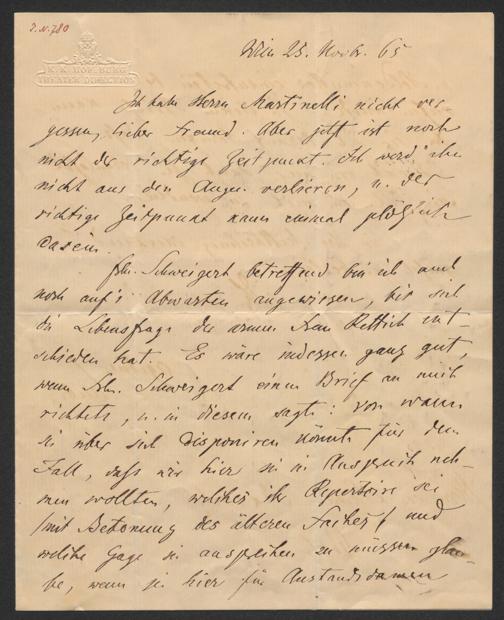 I.N.780
K.K. HOFBURG-
THEATER DIRECTION
Wien 25. Novbr. 65
Ich habe Herrn Martinelli nicht ver
gessen, lieber Freund. Aber jetzt ist noch
nicht der richtige Zeitpunkt. Ich werd' ihn
nicht aus den Augen verlieren, u. der
richtige Zeitpunkt kann einmal plötzlich
dasein.
Frln. Schweigert betreffend bin ich auch
noch auf's Abwarten angewiesen, bis sich
die Lebensfrage der armen Frau Rettich ent-
schieden hat. Es wäre indessen ganz gut,
wenn Frln. Schweigert einen Brief an mich
richtete, u. in diesem sagte: von wann
sie über sich disponiren könnte für den
Fall, daß wir hier sie in Anspruch neh-
men wollten, welches ihr Repertoire sei
(mit Betonung des älteren Faches) und
welche Gage sie ansprechen zu müssen glau-
be, wenn sie hier für Anstandsdamen